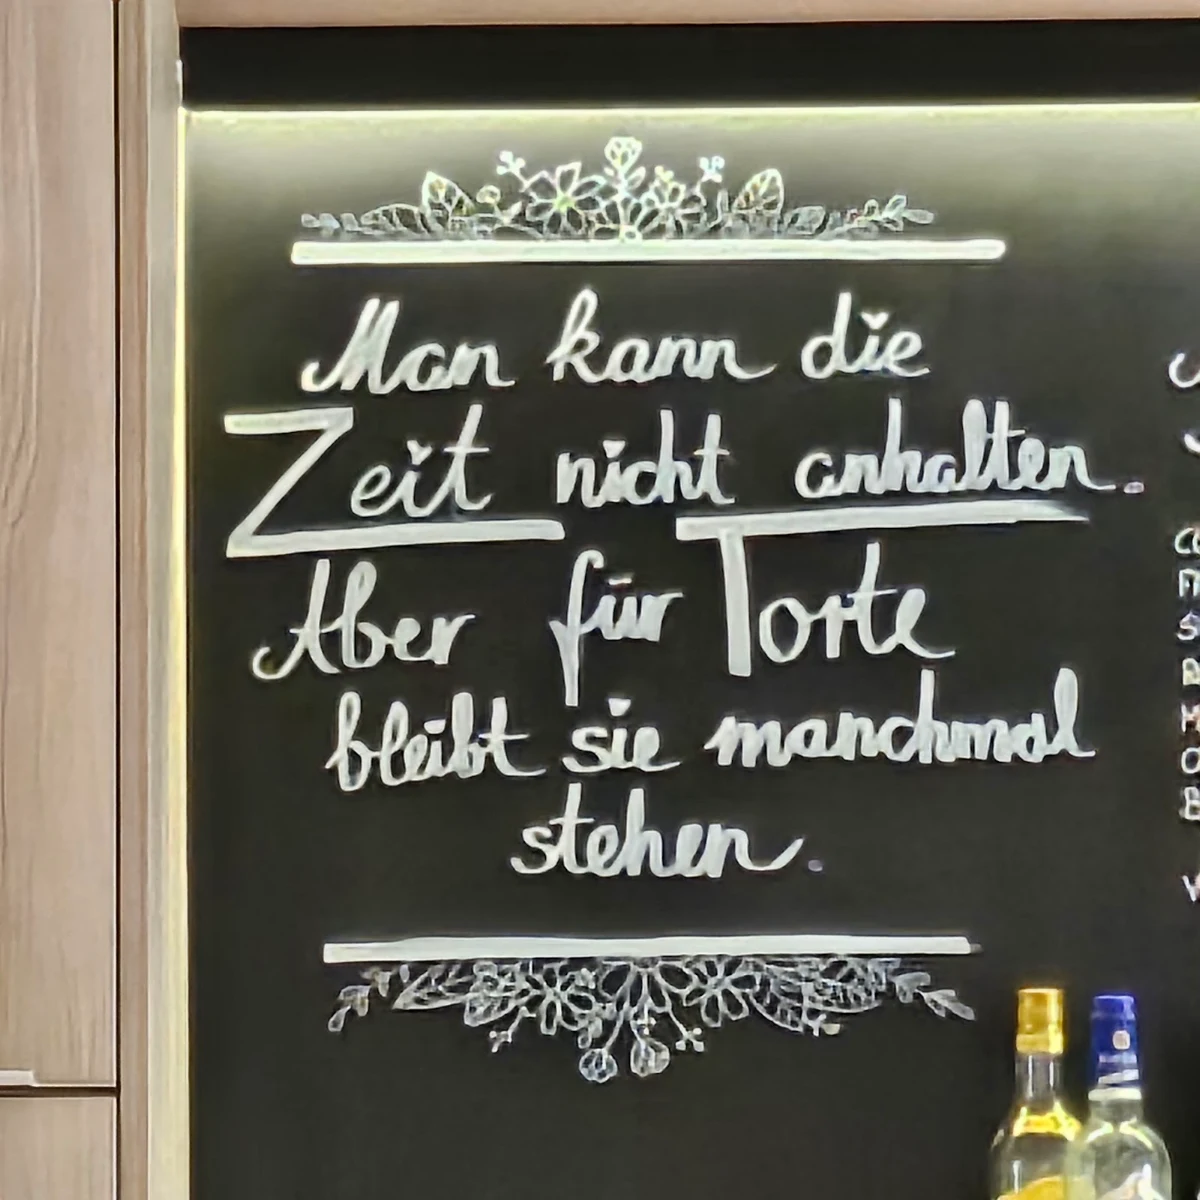 Man kann die
Zeit nicht anhalten.
Aber für Torte
bleibt sie manchmal
stehen.